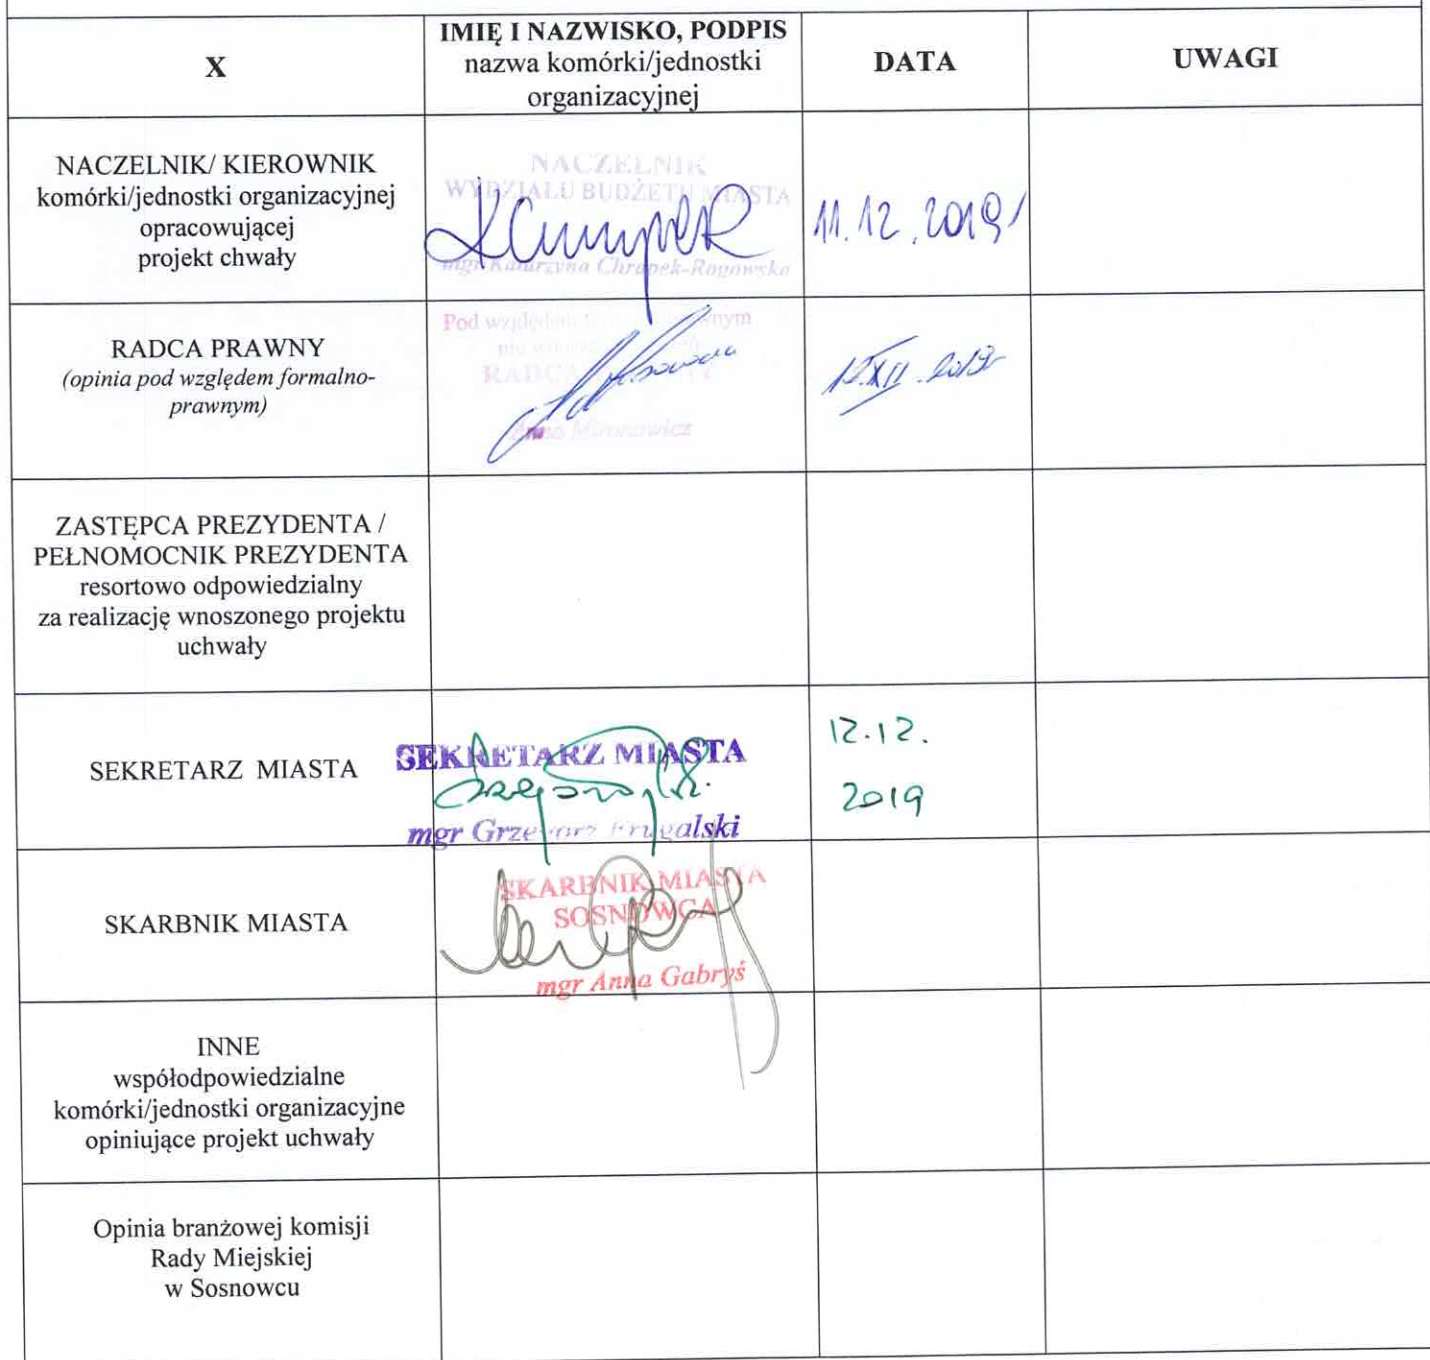 X
IMIĘ I NAZWISKO, PODPIS
nazwa komórki/jednostki
organizacyjnej
DATA
UWAGI
NACZELNIK/ KIEROWNIK
komórki/jednostki organizacyjnej
opracowującej
projekt chwały
NACZELNIK
WYDZIAŁU BUDŻETU MIASTA
mgr Katarzyna Chrapek-Rogowska
11.12.2019
RADCA PRAWNY
(opinia pod względem formalno-
prawnym)
Pod względem
RADCA PRAWNY
Anna Mironowicz
12.XII.2019
ZASTĘPCA PREZYDENTA /
PEŁNOMOCNIK PREZYDENTA
resortowo odpowiedzialny
za realizację wnoszonego projektu
uchwały
SEKRETARZ MIASTA
SEKRETARZ MIASTA
mgr Grzegorz Frugalski
12.12.
2019
SKARBNIK MIASTA
SKARBNIK MIASTA
SOSNOWCA
mgr Anna Gabryś
INNE
współodpowiedzialne
komórki/jednostki organizacyjne
opiniujące projekt uchwały
Opinia branżowej komisji
Rady Miejskiej
w Sosnowcu